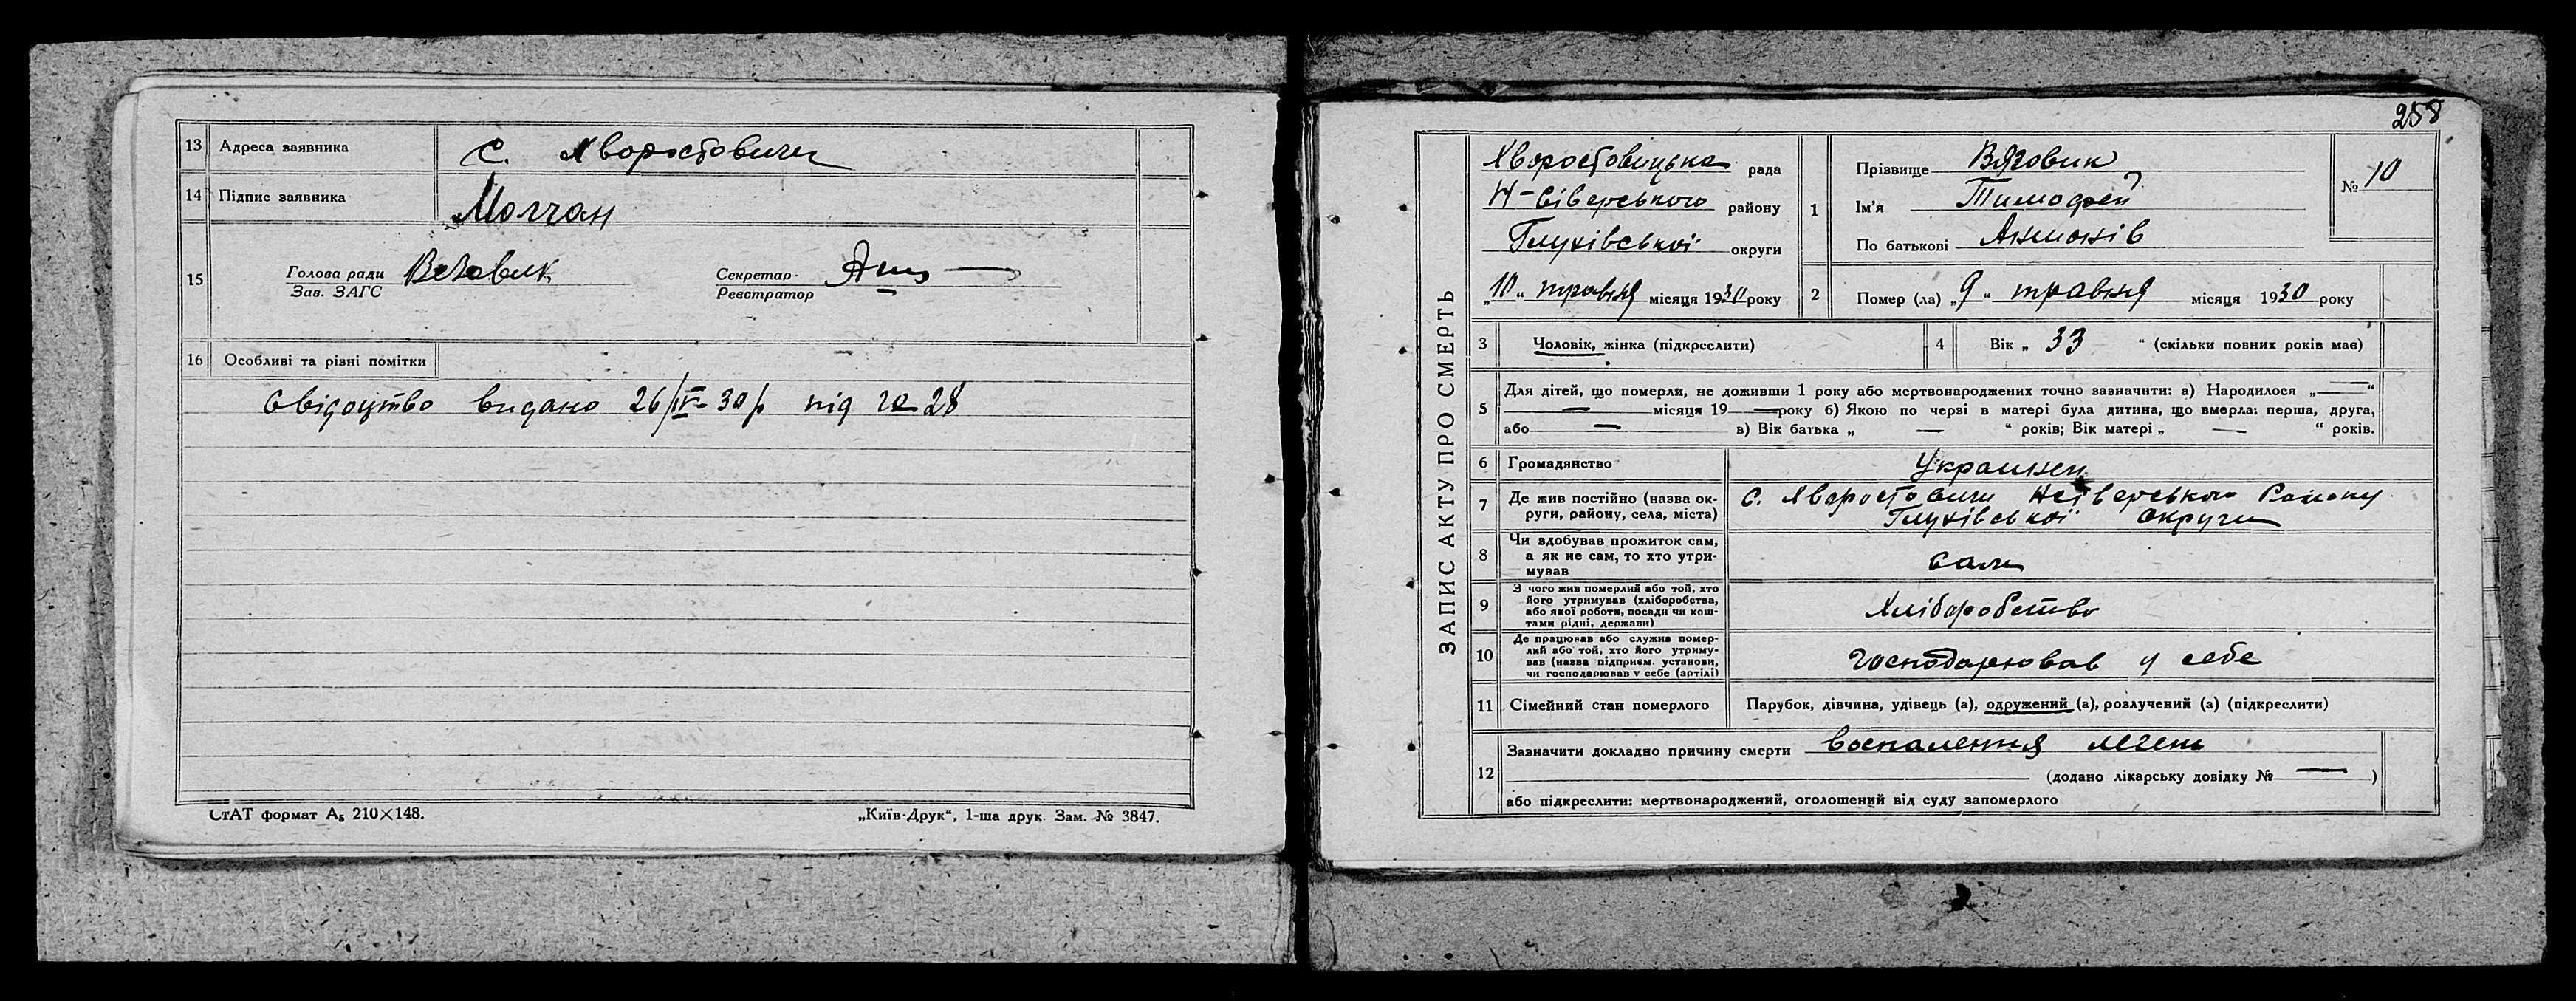 13 Адреса заявника с. Хворостовичи
14 Підпис заявника Молчан
15 Голова ради Вязовик Секретар
Зав. ЗАГС Реєстратор
16 Особливі та різні помітки
Свідоцтво видано 26/IV-30 р під № 28
СтАТ формат А5 210×148. „Київ-Друк“, 1-ша друк. Зам. № 3847.
258
ЗАПИС АКТУ ПРО СМЕРТЬ
Хворостовицька рада
Н-Сіверського району
Глухівської округи
„10“ травня місяця 1930 року
1 Прізвище Вязовик
Ім'я Тимофей
По батькові Антонів
№ 10
2 Помер (ла) „9“ травня місяця 1930 року
3 Чоловік, жінка (підкреслити)
4 Вік „ 33 “ (скільки повних років має)
5 Для дітей, що померли, не доживши 1 року або мертвонароджених точно зазначити: а) Народилося „—“
— місяця 19— року б) Якою по черзі в матері була дитина, що вмерла: перша, друга,
або — в) Вік батька „ — “ років; Вік матері „ — “ років.
6 Громадянство Украинец
7 Де жив постійно (назва ок-
руги, району, села, міста)
с. Хворостовичи Нсіверського Району
Глухівської округи
8 Чи здобував прожиток сам,
а як не сам, то хто утри-
мував
сам
9 З чого жив померлий або той, хто
його утримував (хліборобства,
або якої роботи, посади чи кош-
тами рідні, держави)
Хліборобство
10 Де працював або служив помер-
лий або той, хто його утриму-
вав (назва підприєм. установи,
чи господарював у себе (артілі)
господарював у себе
11 Сімейний стан померлого Парубок, дівчина, удівець (а), одружений (а), розлучений (а) (підкреслити)
12 Зазначити докладно причину смерти воспалення легень
(додано лікарську довідку № — )
або підкреслити: мертвонароджений, оголошений від суду запомерлого